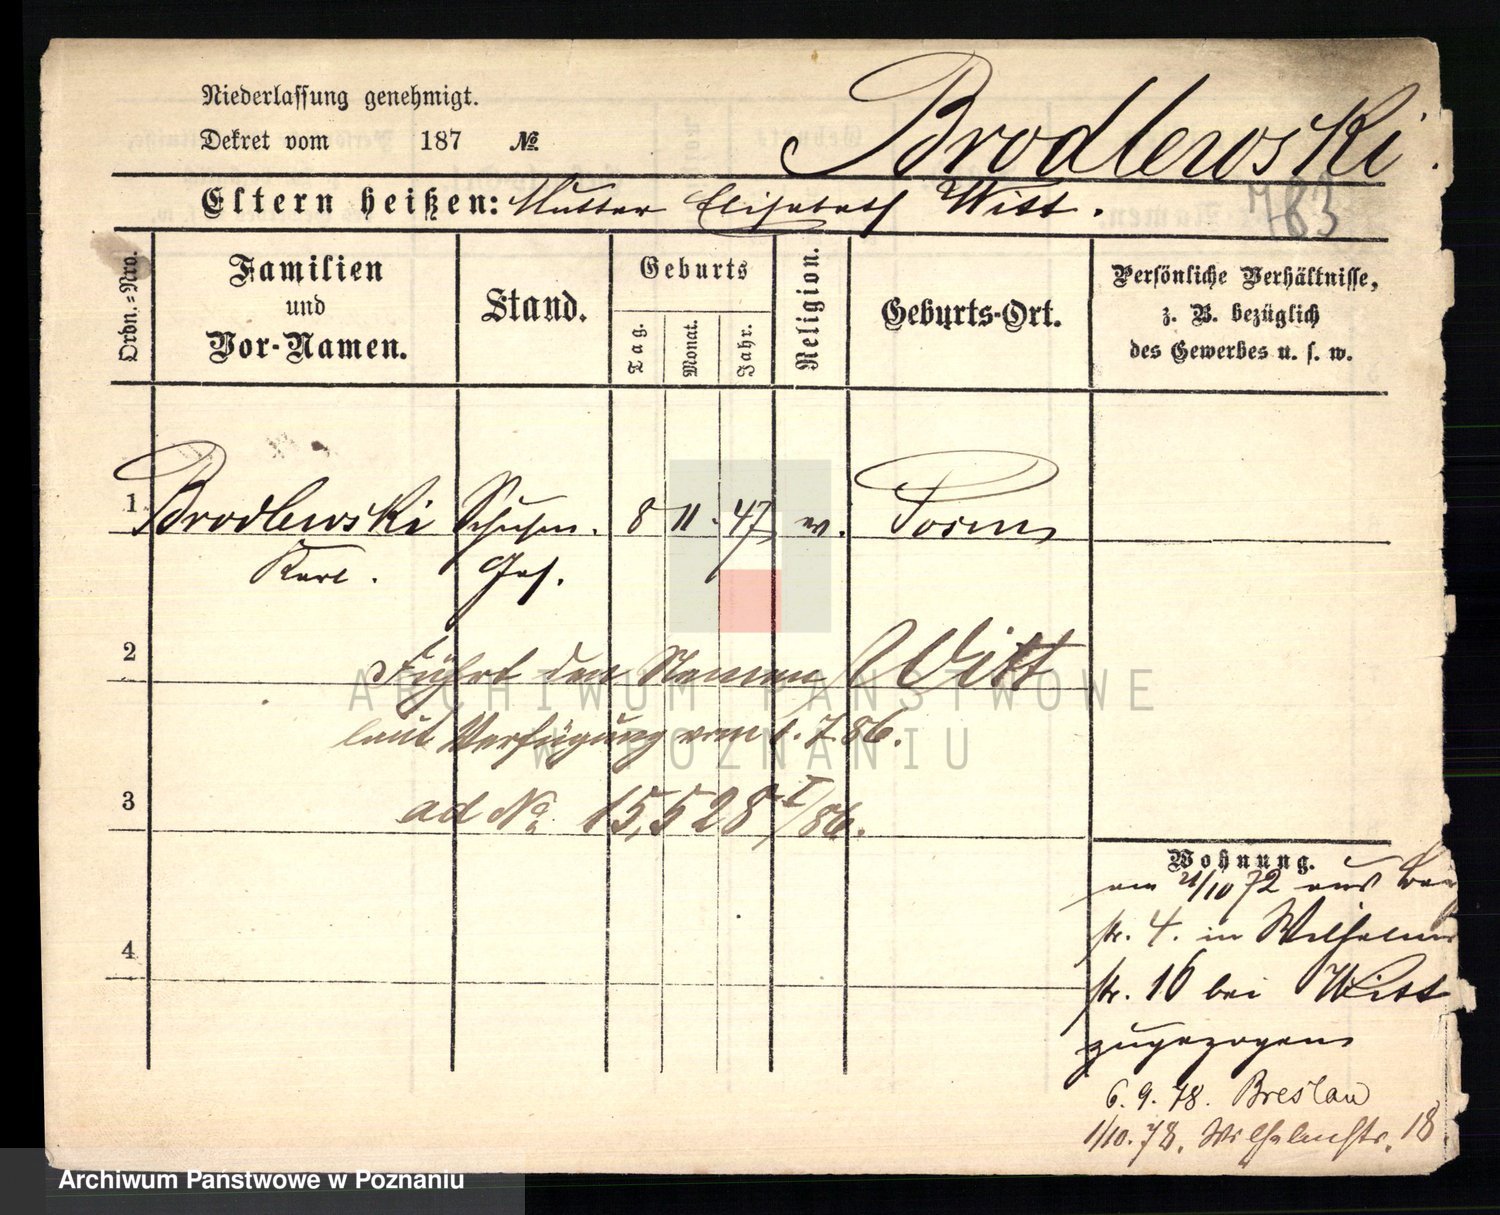 Niederlassung genehmigt.
Dekret vom 187 №
Brodlewski.
Eltern heißen: Mutter Elisabeth Witt.
783
Ordn.-Nro.
Familien
und
Vor-Namen.
Stand.
Geburts
Tag.
Monat.
Jahr.
Religion.
Geburts-Ort.
Persönliche Verhältnisse,
z. B. bezüglich
des Gewerbes u. s. w.
1 Brodlewski 8 11. 47 ev. Posen
Karl. Ges.
2 Führt den Namen Witt
laut Verfügung vom 1.7.86.
3 ad No. 15,528 I/86.
4
Wohnung.
am 21/10 72 aus
str. 4. in Wilhelms
str. 16 bei Witt
zugezogen
6. 9. 78. Breslau
1/10. 78. Wilhelmstr. 18
ARCHIWUM PAŃSTWOWE
W POZNANIU
Archiwum Państwowe w Poznaniu